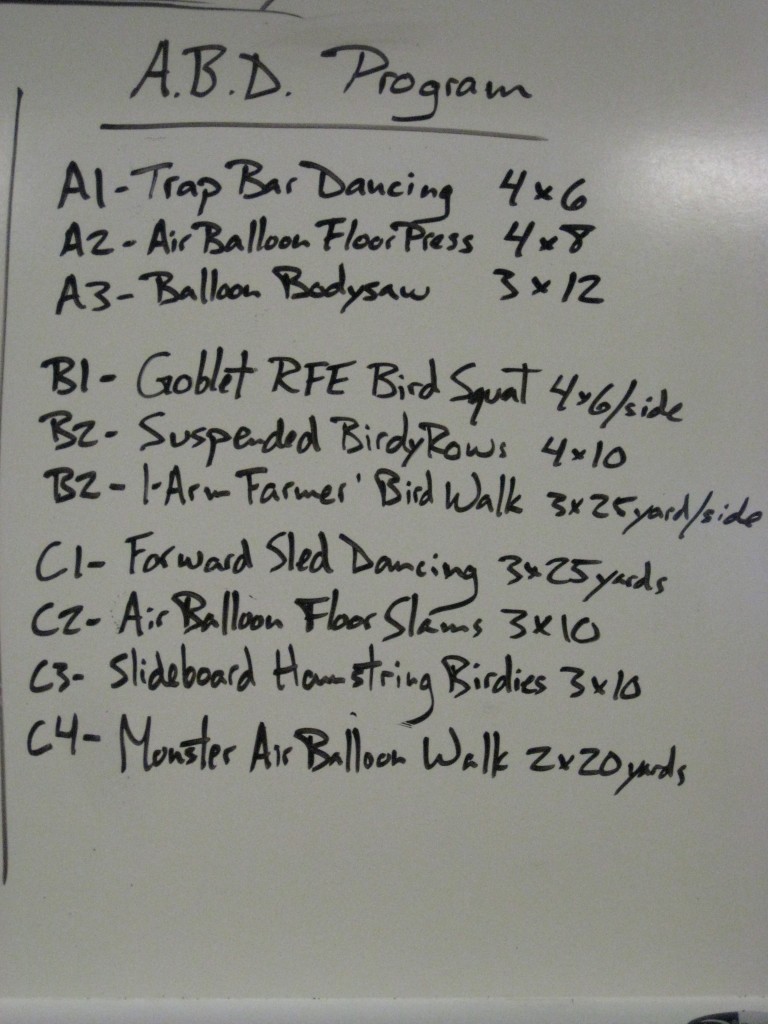 A.B.D. Program
A1-Trap Bar Dancing 4x6
A2-Air Balloon Floor Press 4x8
A3-Balloon Bodysaw 3x12
B1- Goblet RFE Bird Squat 4x6/side
B2- Suspended Birdy Rows 4x10
B2-1-Arm Farmer' Bird Walk 3x25yard/side
C1- Forward Sled Dancing 3x25yards
C2- Air Balloon Floor Slams 3x10
C3- Slideboard Hamstring Birdies 3x10
C4- Monster Air Balloon Walk 2x20yards